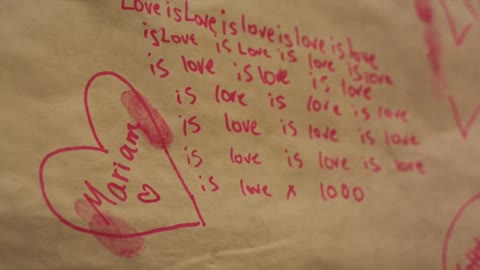 Love is Love is love is love is love
is Love is Love is love is love
is love is love is love
is love is love is love
is love is love is love
is love is love is love
is love x 1000
Mariam